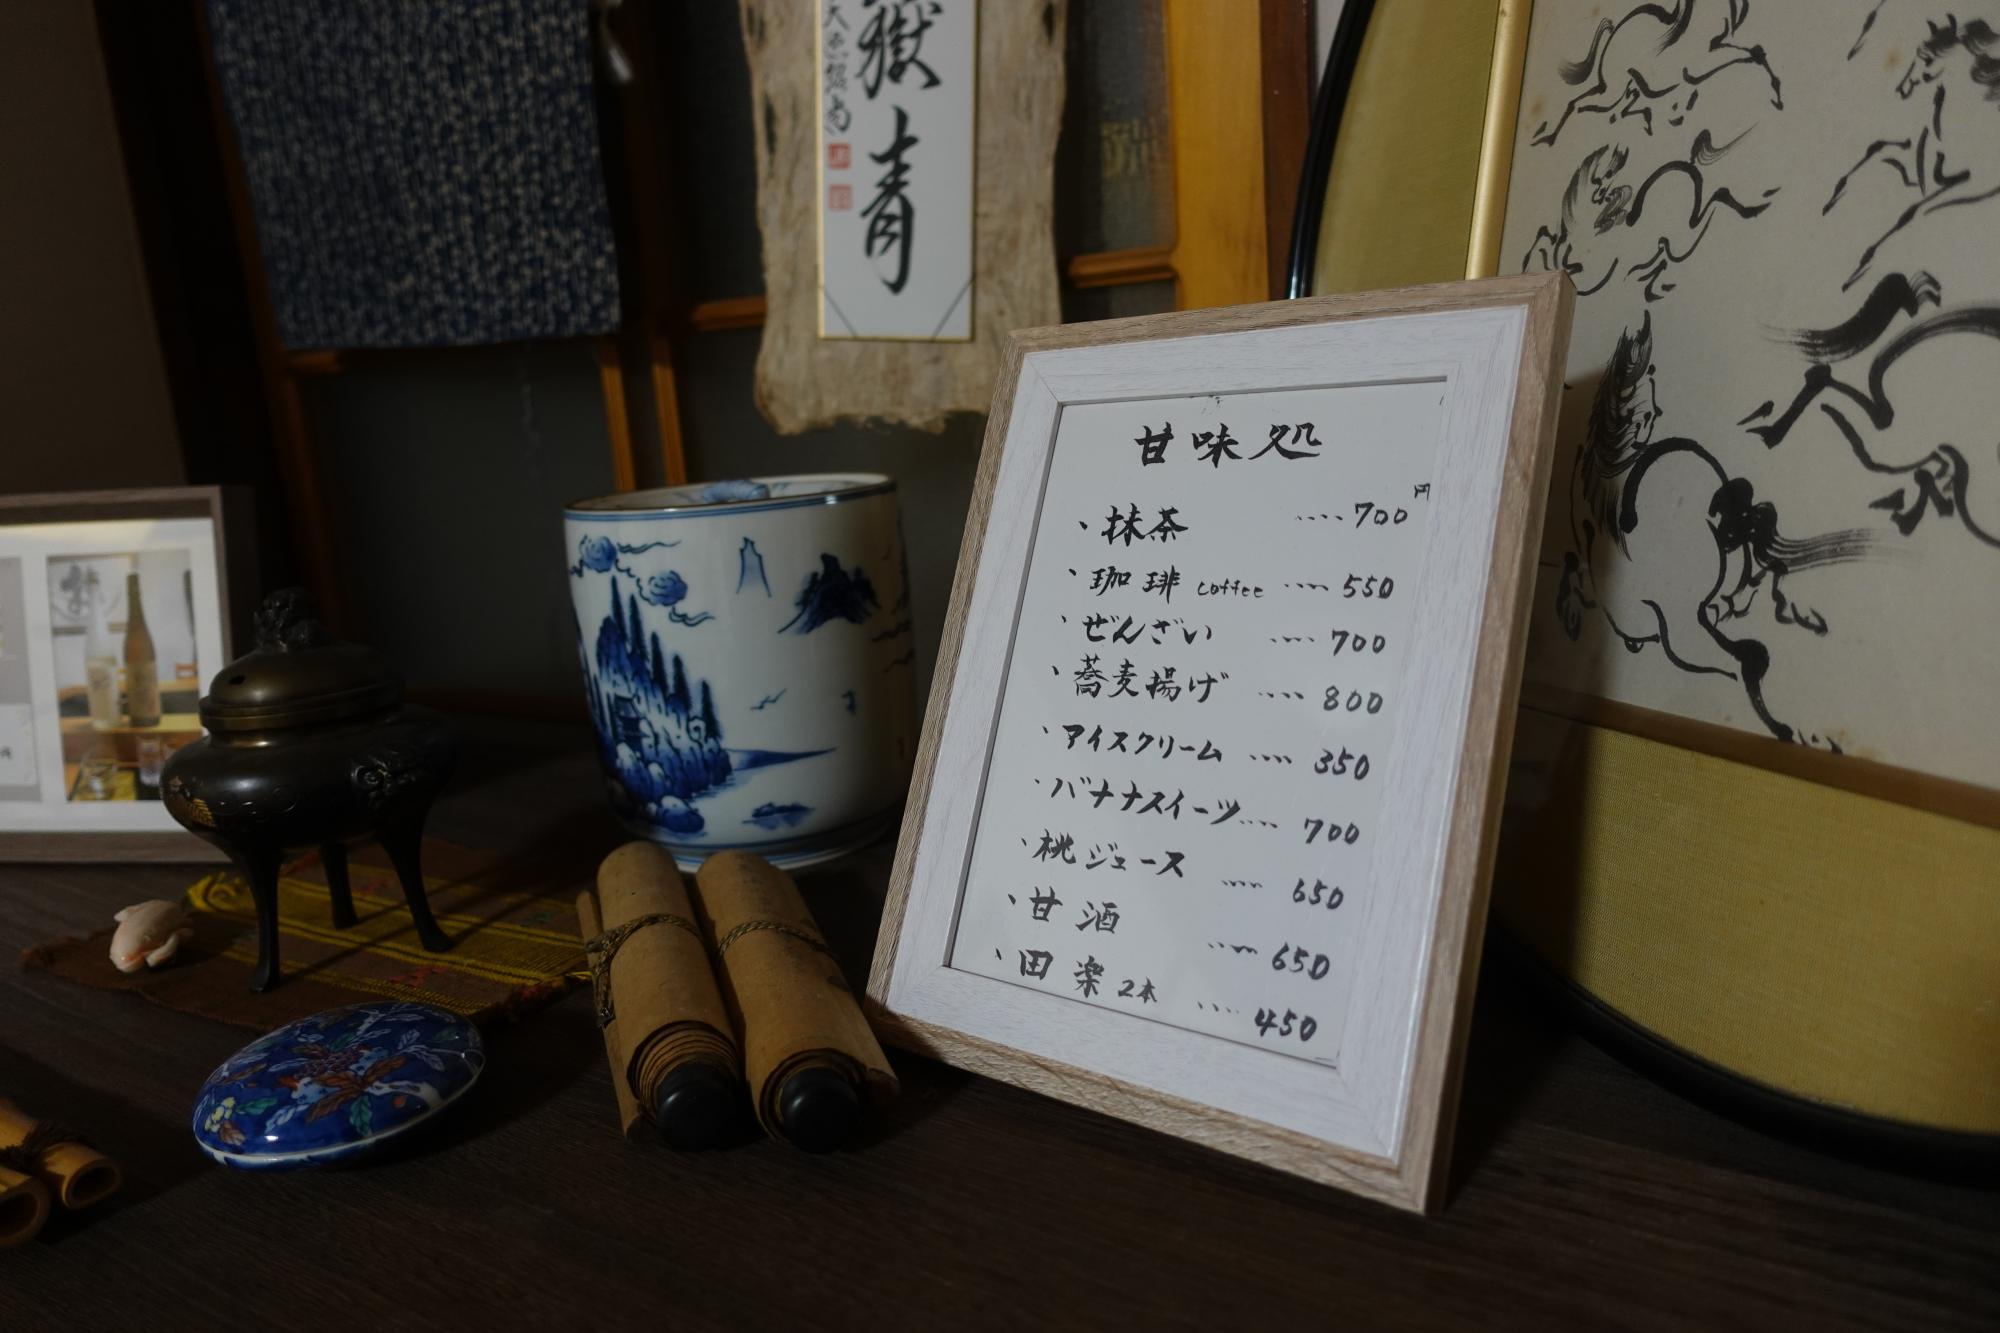 嶽青
甘味処
、抹茶 ....700円
、珈琲 coffee ....550
、ぜんざい ....700
、蕎麦揚げ ....800
、アイスクリーム ....350
、バナナスイーツ....700
、桃ジュース ....650
、甘酒 ....650
、田楽2本 ....450